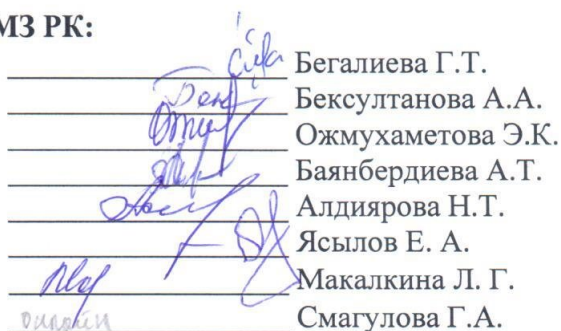 МЗ РК:
Бегалиева Г.Т.
Бексултанова А.А.
Ожмухаметова Э.К.
Баянбердиева А.Т.
Алдиярова Н.Т.
Ясылов Е. А.
Макалкина Л. Г.
онлайн Смагулова Г.А.